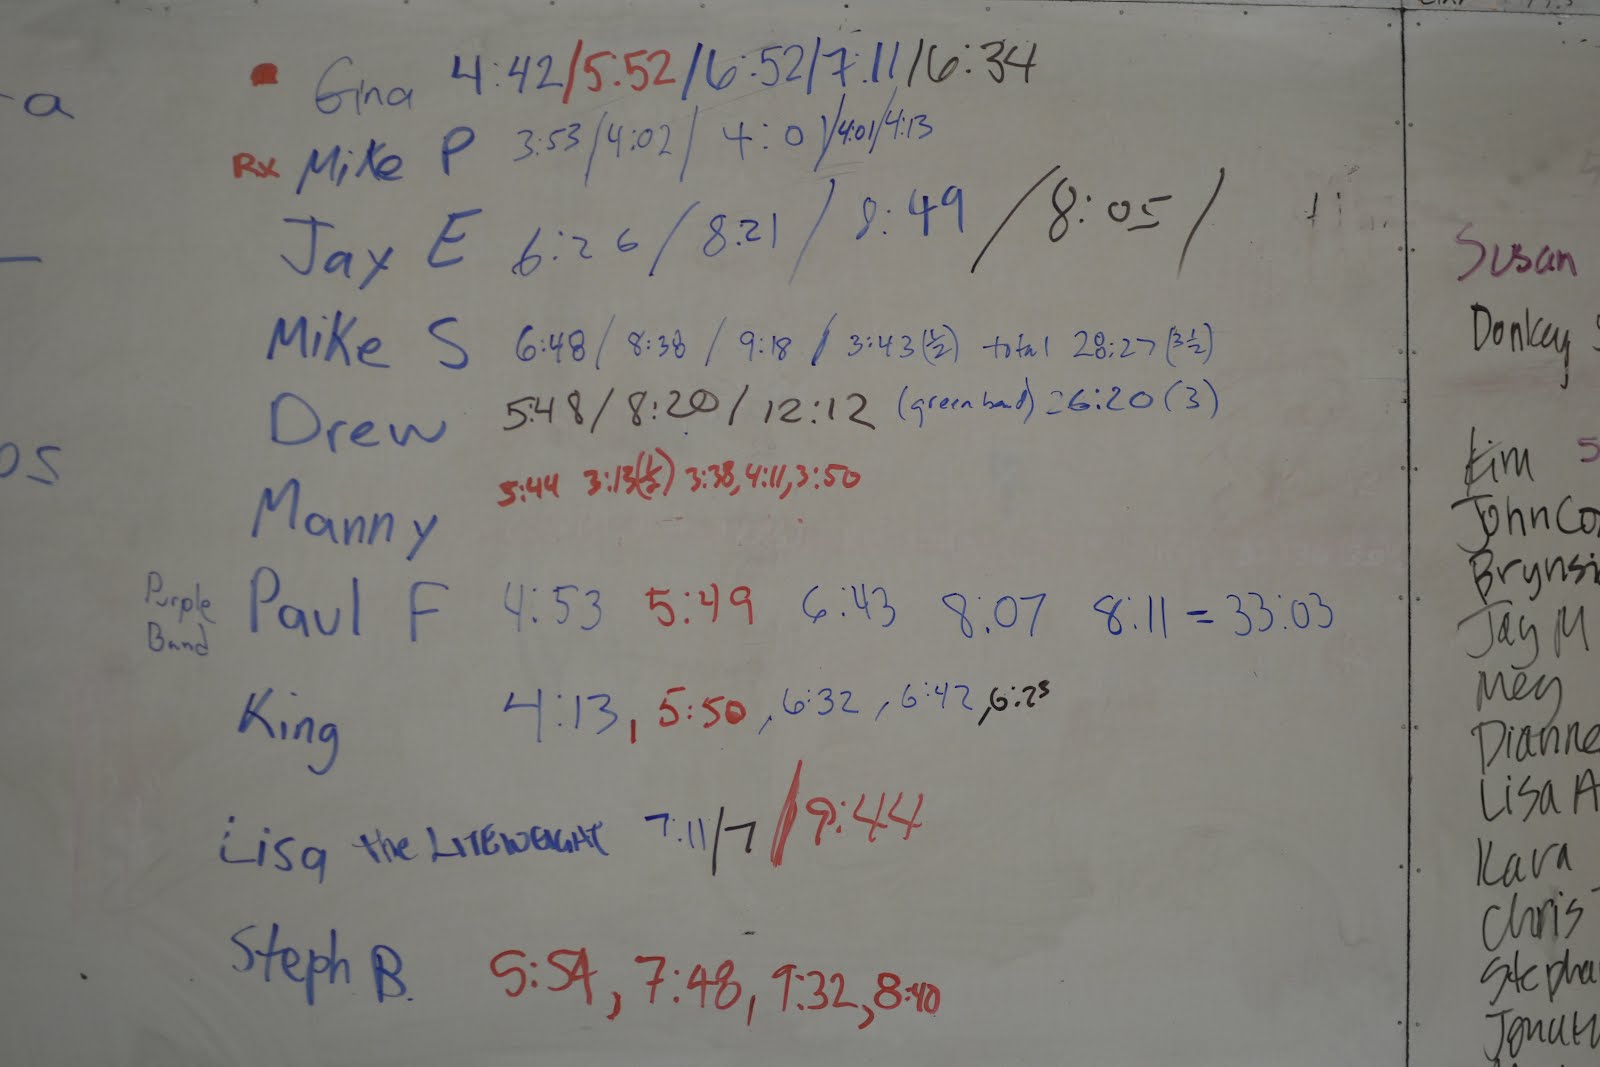 a
Gina 4:42/5:52/6:52/7:11/6:34
Rx Mike P 3:53/4:02/ 4:01/4:01/4:13
Jay E 6:26/8:21/8:49/8:05/
Mike S 6:48/8:38/9:18/3:43(1/2) total 28:27(3 1/2)
Drew 5:48/8:20/12:12 (green band) =6:20(3)
os
Manny 5:44 3:13(1/2) 3:38,4:11,3:50
Purple Band Paul F 4:53 5:49 6:43 8:07 8:11 = 33:03
King 4:13, 5:50, 6:32, 6:42,
Lisa the LITEWEIGHT 7:11/7/9:44
Steph B. 5:54, 7:48, 9:32, 8:40
Susan
Donkey
Kim 5
John Co
Brynsi
Jay M
Meg
Dianne
Lisa A
Kara
Chris
Stepha
Jonat